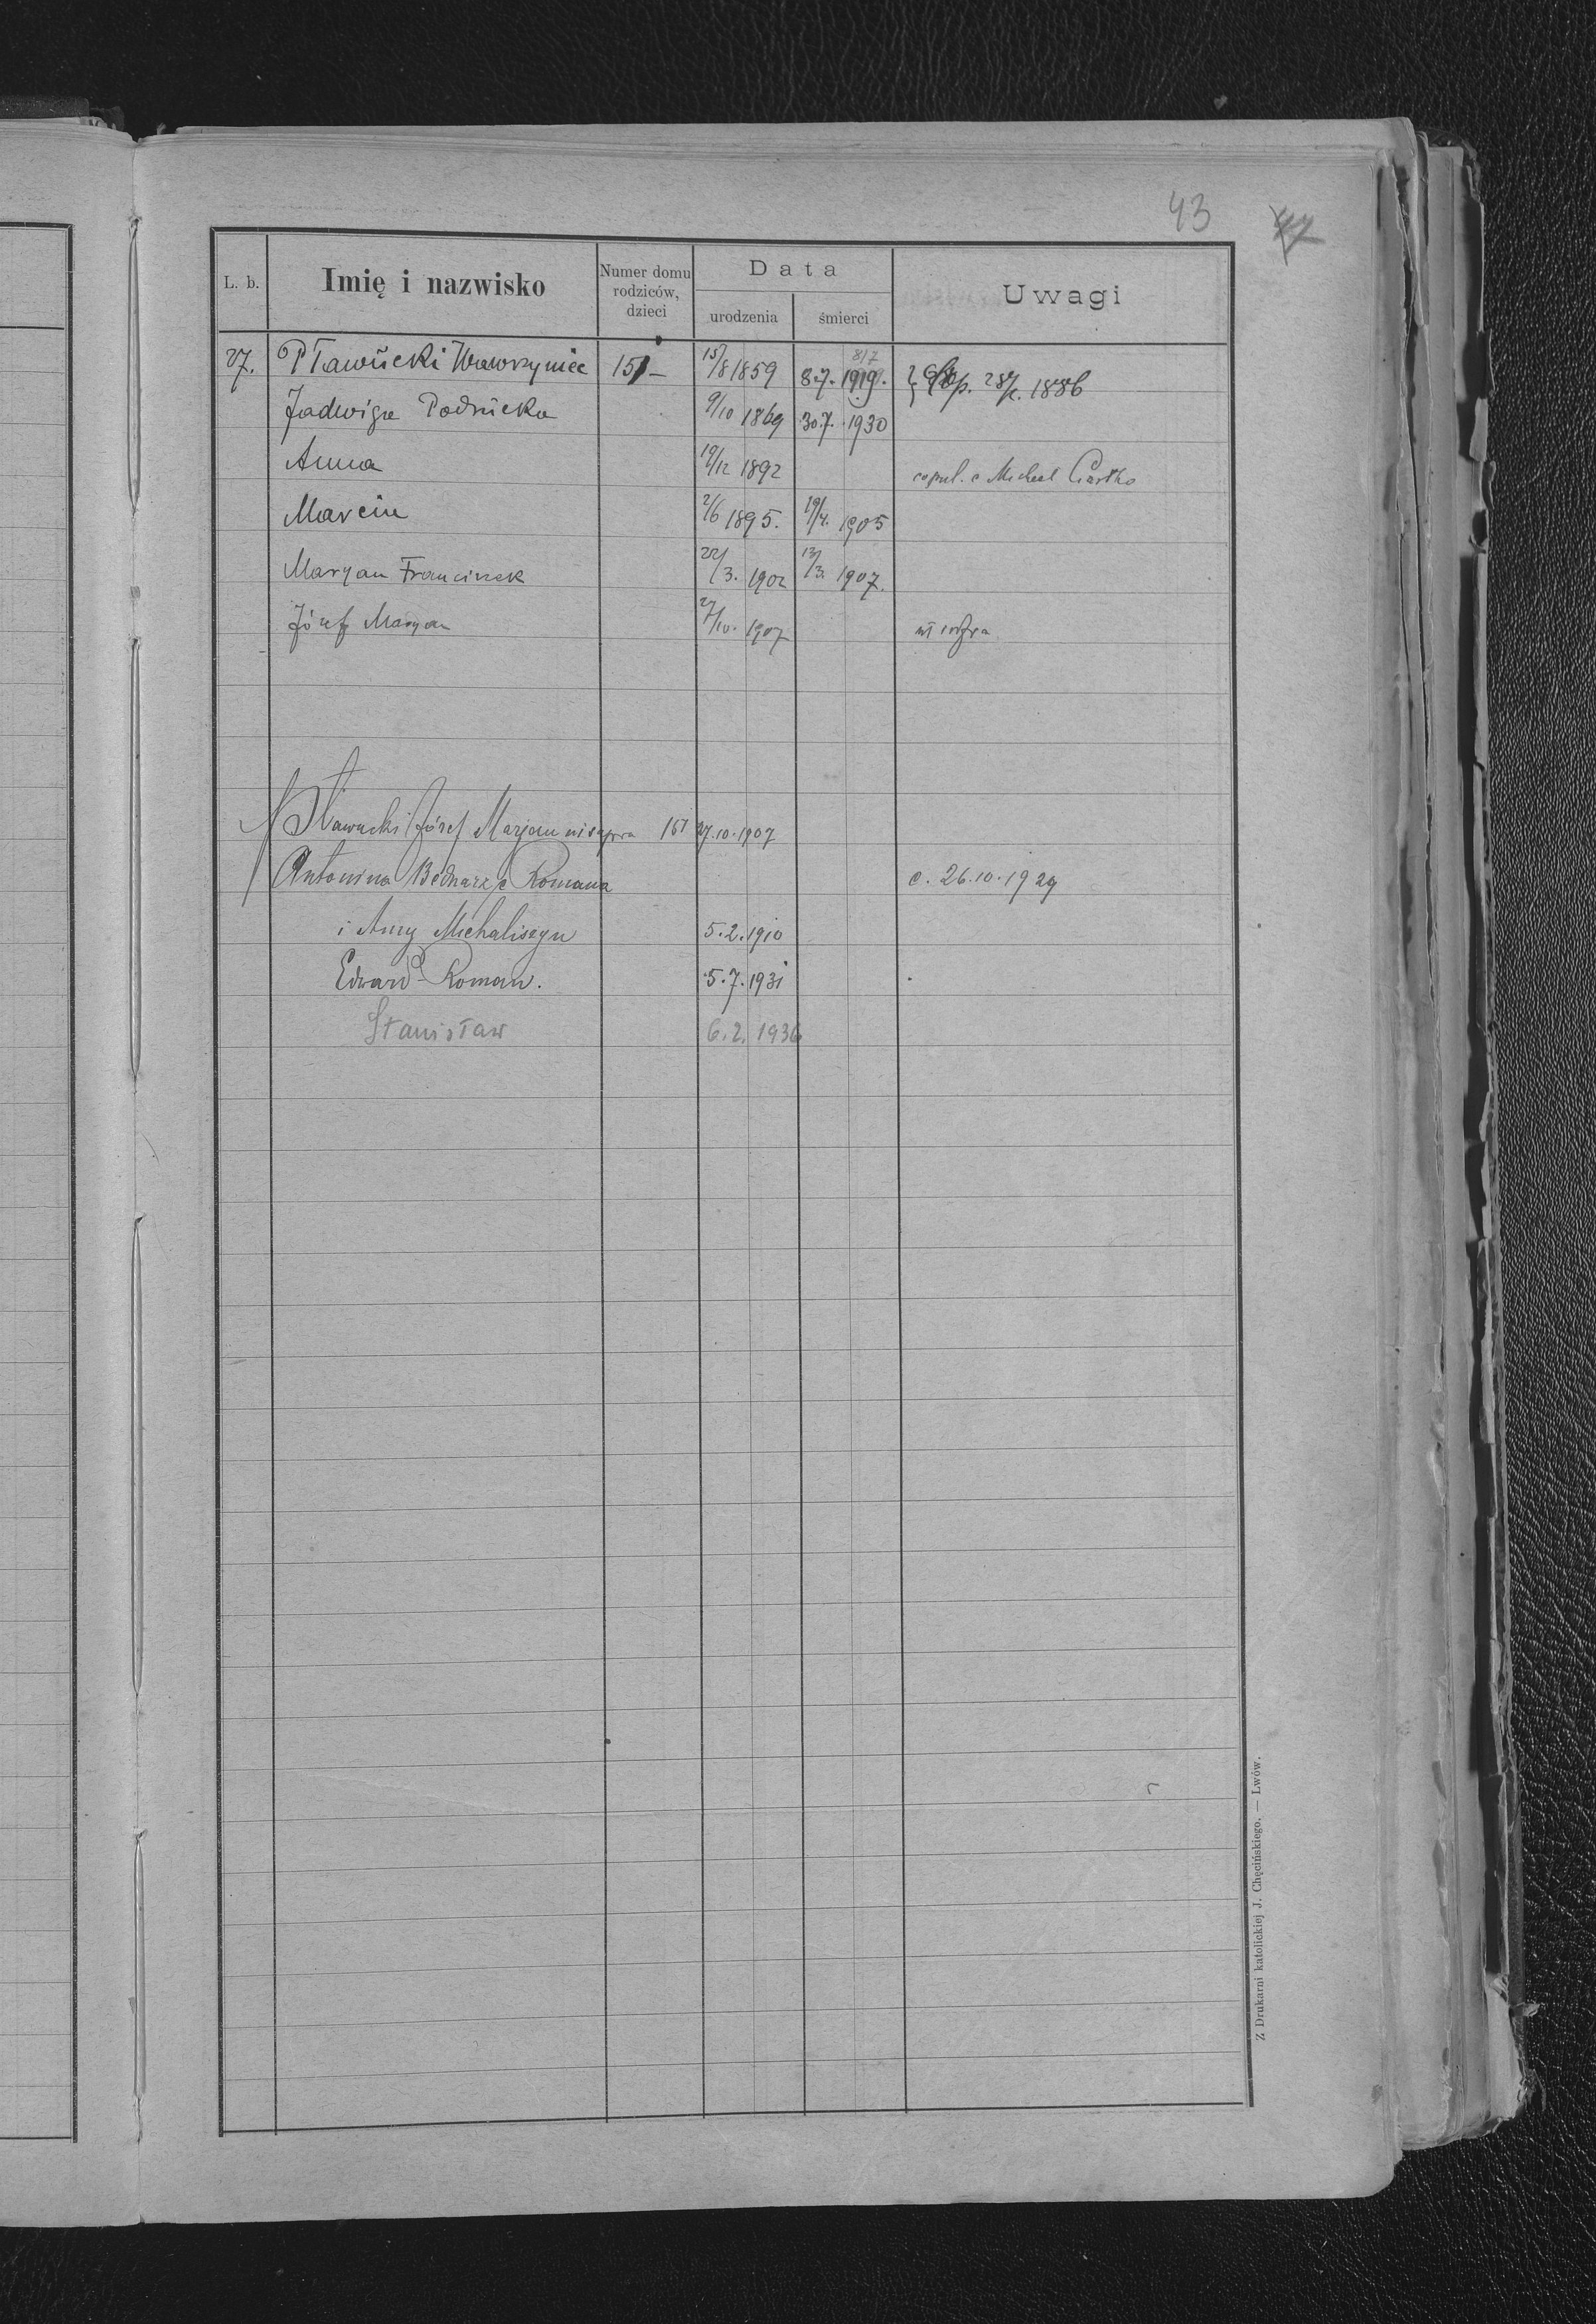 43
L. b. Imię i nazwisko Numer domu rodziców, dzieci Data urodzenia śmierci Uwagi
27. Pławucki Wawrzyniec 151 – 15/8 1859 8.7. 1919. 8/7 cop. 1886
Jadwiga 9/10 1869 30.7. 1930
Anna 19/12 1892 copul. c Michael
Marcin 2/6 1895. 19/4. 1905
Maryan Franciszek 22/3. 1902 13/3. 1907.
Józef Maryan 27/10. 1907
Pławucki Józef Marjan 151 27.10.1907
Antonina Bednarz c Romana c. 26.10.1929
i Anny Michaliszyn 5.2.1910
Edward Roman. 5.7.1931
Stanisław 6.2.1936
Z Drukarni katolickiej J. Chęcińskiego. — Lwów.